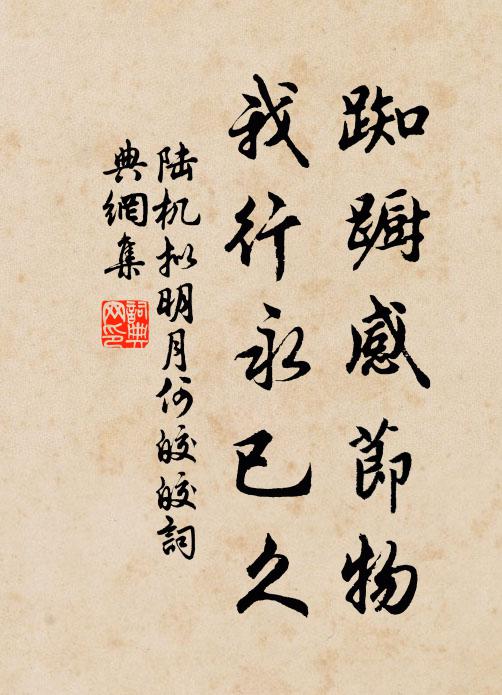 踟蹰感節物
我行永已久
陆机拟明月何皎皎詞
典網集
詞典
网印